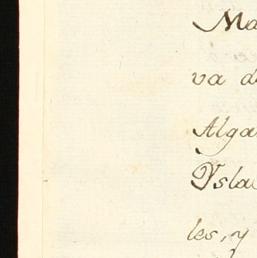 Ma
va d
Alga
Ysla
les, y